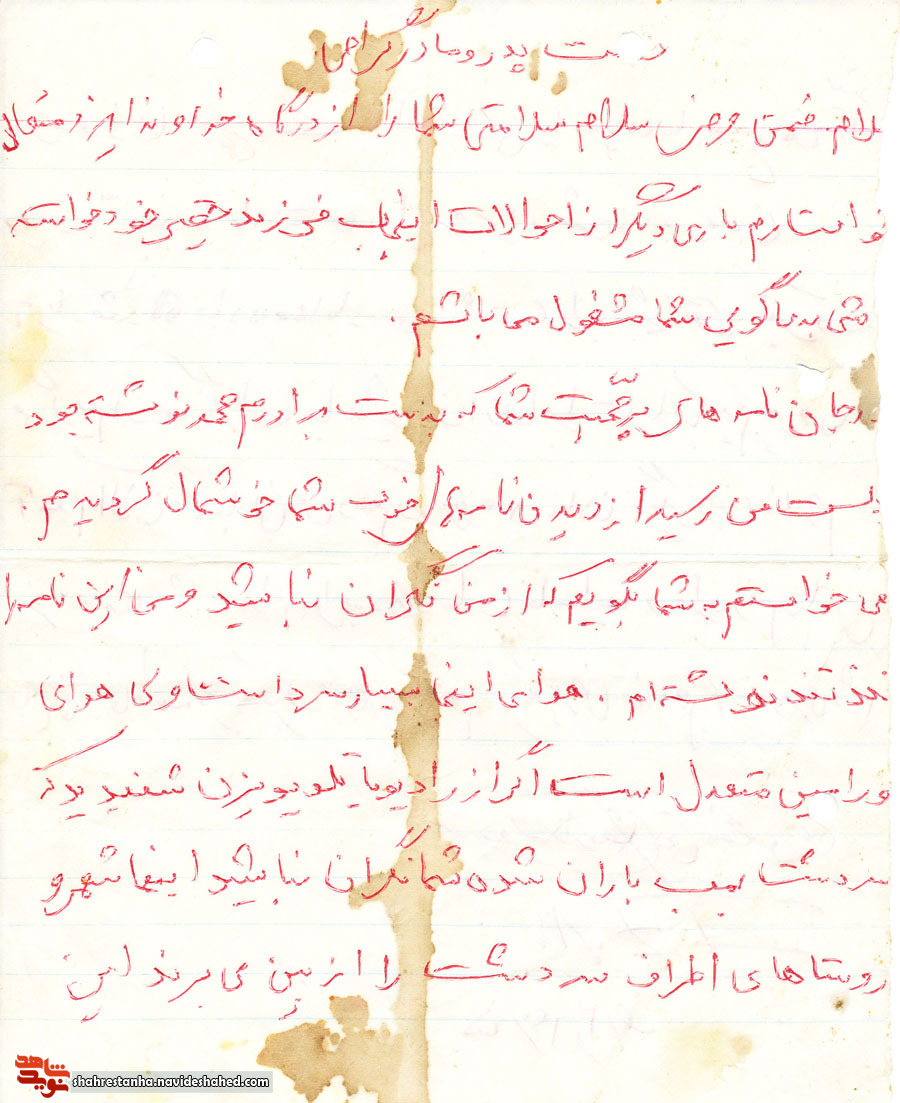 پدر و مادر گرامی
سلام ضمن عرض سلام سلامتی شما را از درگاه خداوند ایزد متعال
خواستارم باری دیگر از احوالات اینجانب فرزند حقیر خود خواسته
بدعاگویی شما مشغول می باشم .
نامه های پرمحبت شما که بدست برادرم محمد نوشته بود
بدست من رسید از دیدن نامه های خوب شما خوشحال گردیدم .
می خواستم به شما بگویم که از من نگران نباشید و من این نامه را
تند تند نوشته ام . هوای اینجا بسیار سرد است ولی هوای
ورامین معتدل است اگر از رادیو یا تلویویزن شنیدید که
سردشت بمب باران شده شما نگران نباشید اینها شهر و
روستاهای اطراف سردشت را از بین می برند این
نوید شاهد
shahrestanha.navideshahed.com